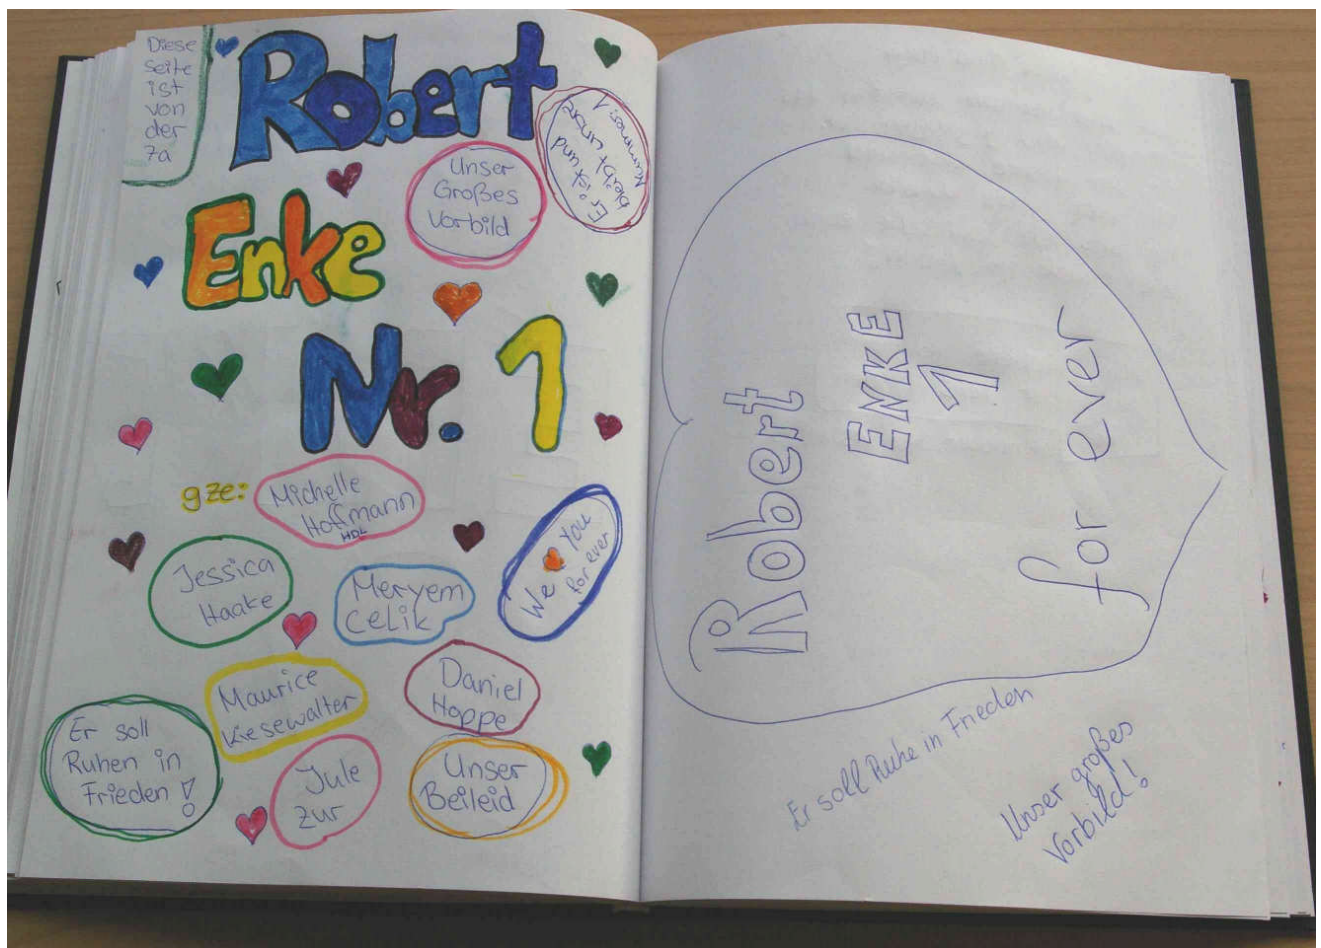 Diese
seite
ist
von
der
7a
Robert
Enke
Nr. 1
Unser
Großes
Vorbild
Er ist und
bleibt unsre
Nummer 1
gze:
Michelle
Hoffmann
HDL
Jessica
Haake
Meryem
Celik
We You
for ever
Maurice
Kiesewalter
Daniel
Hoppe
Er soll
Ruhen in
Frieden !
Jule
zur
Unser
Beileid
Robert
ENKE
1
for ever
Er soll Ruhe in Frieden
Unser großes
Vorbild!